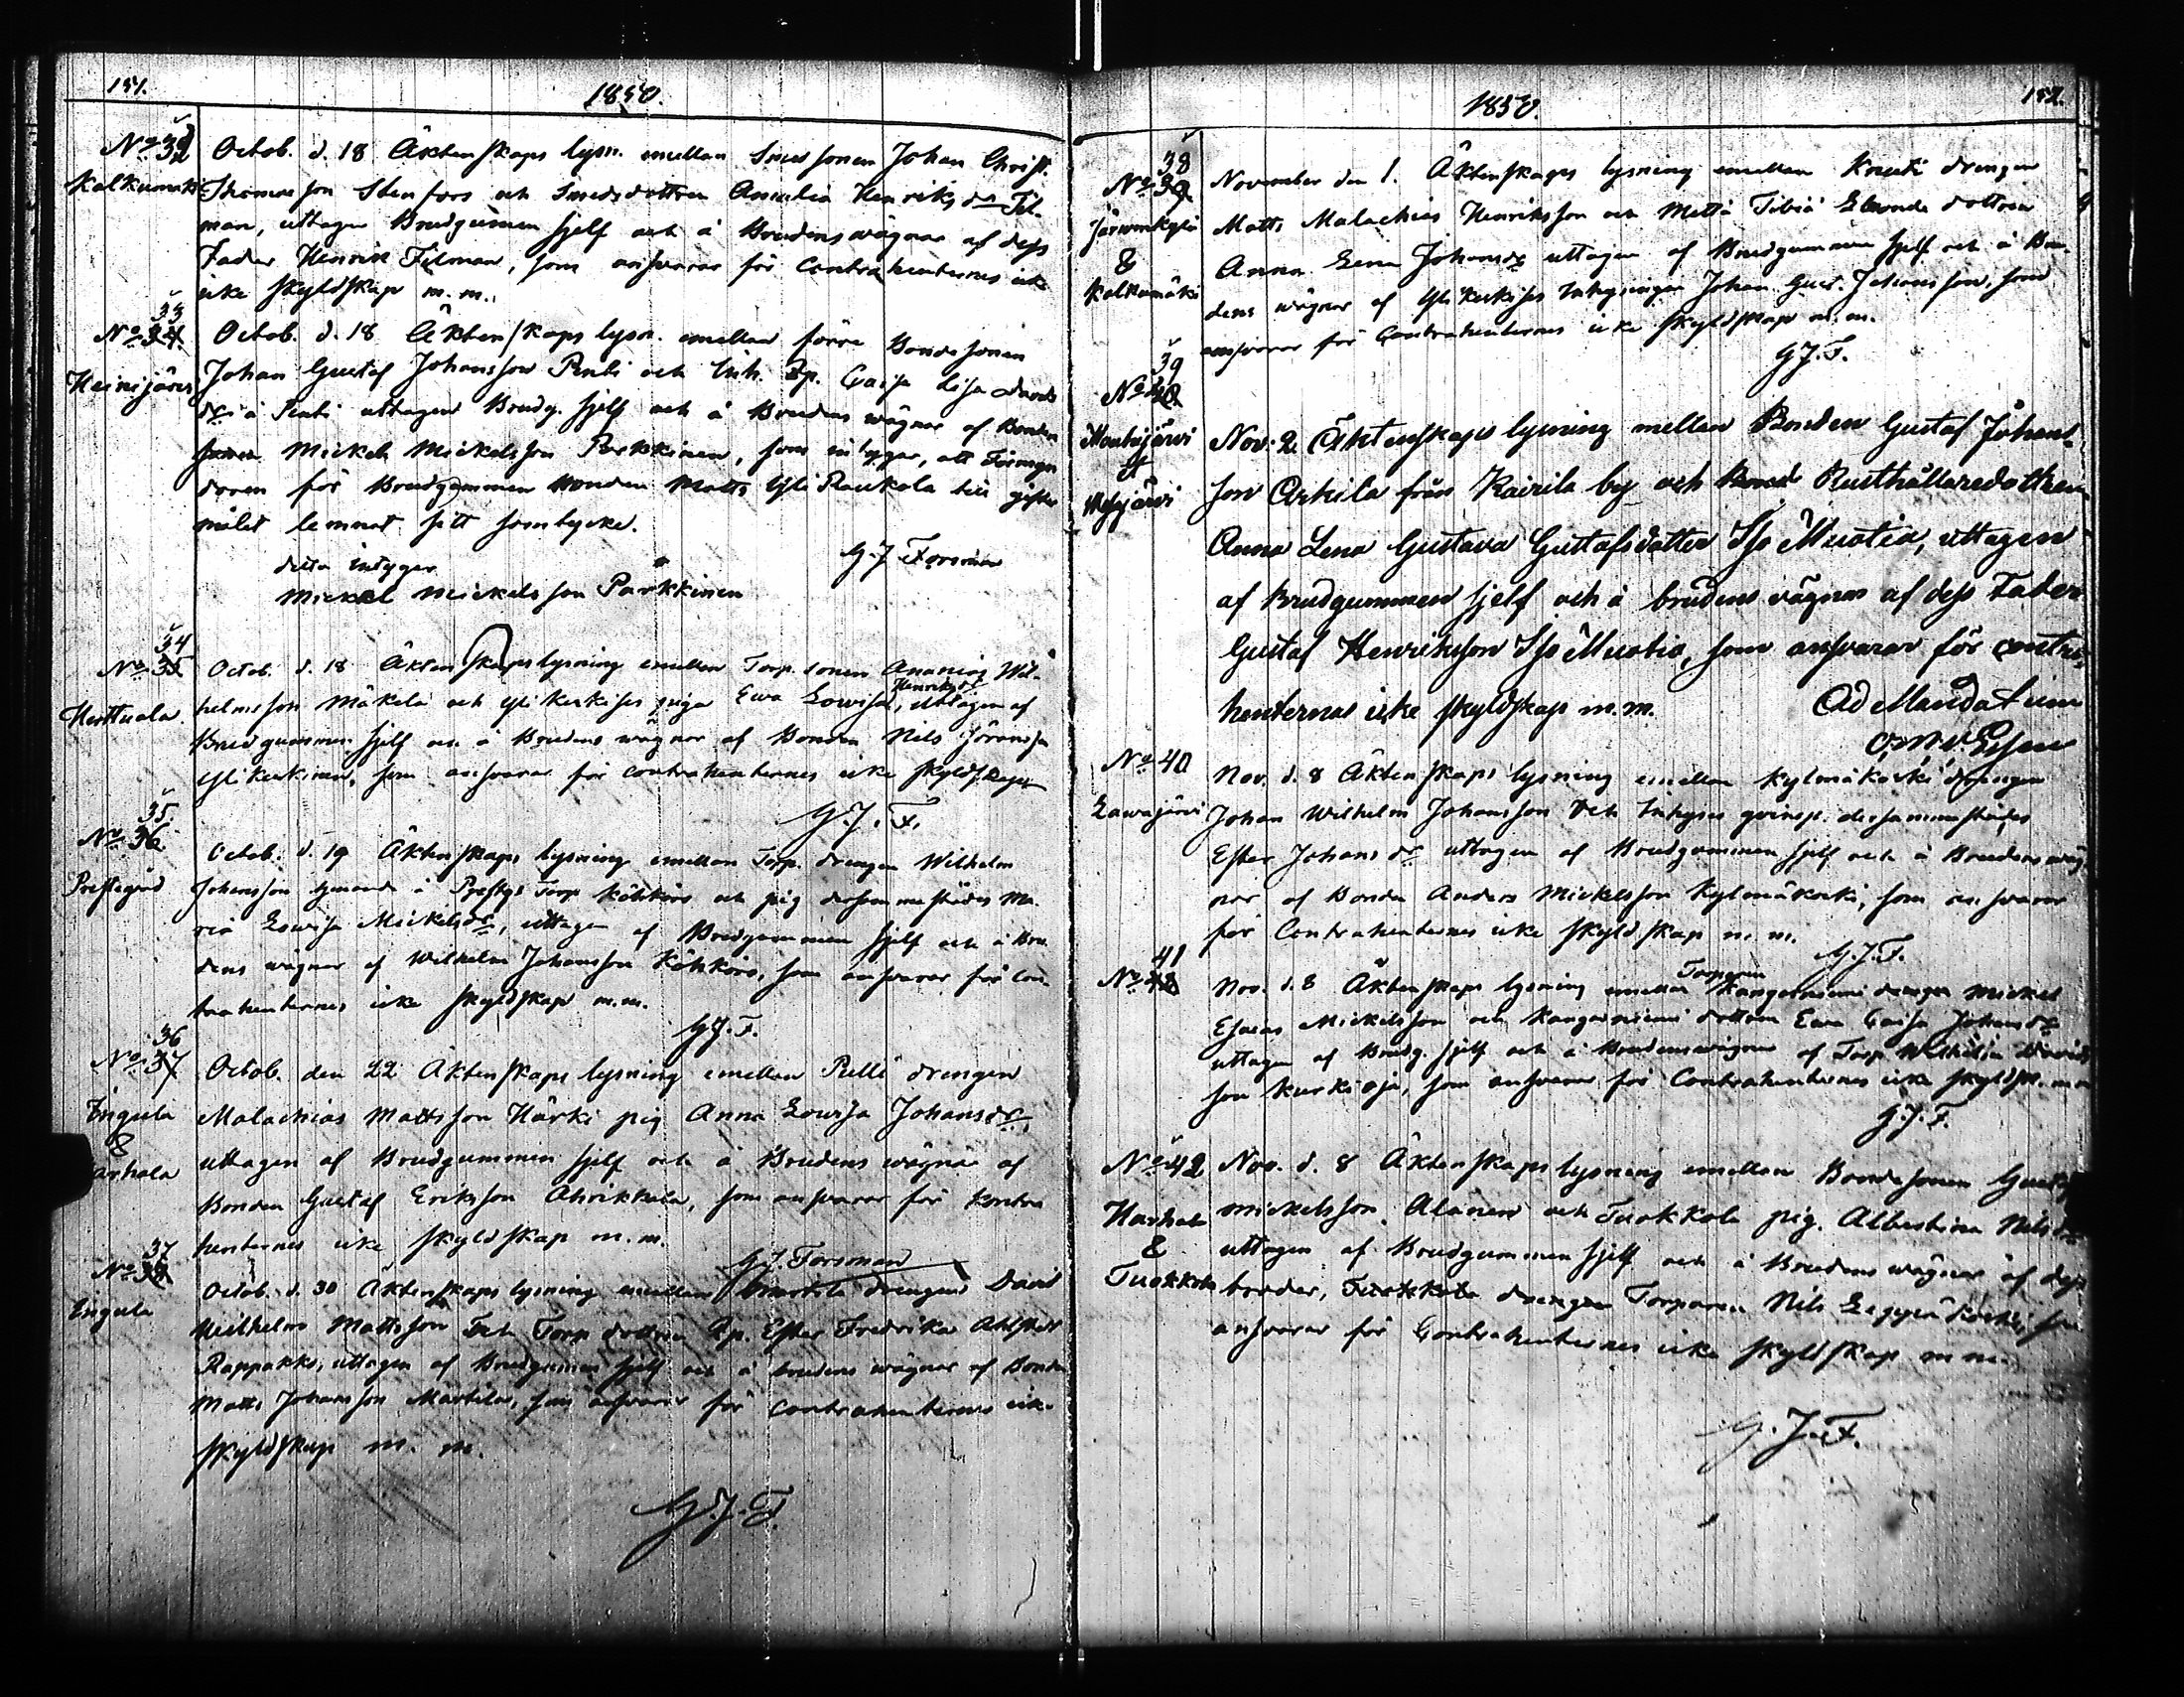 151.
1850.
No 32
Kalkunmäki
Octob. d. 18 Äktenskaps lysn. emellan Smeds sonen Johan Christ.
Thomasson Stenfors och Smedsdottren Amalia Henriksdr Fil-
man, uttagen Brudgumen sjelf och å Brudens wägnar af dess
Fader Henrik Filman, som ansvarar för Contrahenternes icke
icke skyldskap m. m.
33
No 34
Heinijärvi
Octob. d. 18 Äktenskaps lysn. emellan förre Bondesonen
Johan Gustaf Johansson Penti och Inh. Caisa Lisa Davids
dr å Penti uttagen Brudg. sjelf och å Brudens wägnar af Bonden
Mickel Mickelsson Parkkinen, som intygar, att Förmyn
daren för Brudgummen Bonden Matts Yli Raukola till gifter
målet lemnat sitt samtycke.
detta intygar
G. J. Forsman
Mickel Mickelsson Parkkinen
34
No 35
Herttuala
Octob. d. 18 Äktenskapslysning emellan Torp. sonen Ananias Wil-
helmsson Mäkelä och Yli Kerkises piga Ewa Lowisa Henriksdr, uttagen af
Brudgummen sjelf och å Brudens wägnar af Bonden Nils Göransson
Yli Kerkinen, som ansvarar för contrahenternes icke skyldskap
G. J. F.
35
No 36
Prestegård
Octob. d. 19 Äktenskaps lysning emellan Torp. drengen Wilhelm
Johansson å Prestgs Torp Köhkörö och pig dersammastädes Ma-
ria Lowisa Mickelsdr, uttagen af Brudgummen sjelf och å Bru-
dens wägnar af Wilhelm Johansson Köhkörö, som ansvarar för Con-
trahenternes icke skyldskap m. m.
G. J. F.
36
No 37
Ingula
&
Karhala
Octob. den 22 Äktenskaps lysning emellan Pelli drengen
Malachias Mattsson Härki pig Anna Lowisa Johansdr,
uttagen af Brudgummen sjelf och å Brudens wägnar af
Bonden Gustaf Eriksson Ahrikkala, som ansvarar för kontra
henternes icke skyldskap m. m.
G. J. Forsman
37
No 38
Ingula
Octob. d. 30 Äktenskaps lysning emellan drengen David
Wilhelm Mattsson och Torp dottren Ester Fredrika
Rappakko, uttagen af Brudgumen sjelf och å brudens wägnar af Bonden
Matts Johansson Marttila, som ansvarar för Contrahenternes icke
skyldskap m. m.
G. J. F.
1850.
152.
38
No 39
Järvenkylä
&
Kalkumäki
November den 1. Äktenskaps lysning emellan Knuuti drengen
Matts Malachias Henriksson och Mettä dottren
Anna Lena Johansdr uttagen af Brudgummen sjelf och å Bru-
dens wägnar af Yli Kerkises Inhysingen Johan Gust. Johansson, som
ansvarar för Contrahenternes icke skyldskap m. m.
G. J. F.
39
No 40
Kauhajärvi
&
Nov. 2. Äktenskaps lysning mellan Bonden Gustaf Johans-
son Arkila från Kairila by och Rusthållaredottren
Anna Lena Gustava Gustafsdotter Iso Mustia, uttagen
af Brudgummen sjelf och å brudens vägnar af dess Fader
Gustaf Henriksson Iso Mustia, som ansvarar för contra-
henternas icke skyldskap m. m.
Ad Mandatum
No 40
Lawajärvi
Nov. d. 8 Äktenskaps lysning emellan Kylmäkoski drengen
Johan Wilhelm Johansson och Inhyses qvinsp. dersammastädes
Ester Johansdr uttagen af Brudgummen sjelf och å Brudens wäg
nar af Bonden Anders Mickelsson Kylmäkoski, som ansvarar
för Contrahenternes icke skyldskap m. m.
G. J. F.
41
No 42
Nov. d. 8 Äktenskaps lysning emellan Torparen Kangasniemi drengen Mickel
Esaias Mickelsson och Kangasniemi dottren Ewa Caisa Johansdr
uttagen af Brudg. sjelf och å Brudenswägnar af Torp. Wilhelm Davids
son Kurkioja, som ansvarar för Contrahenternes icke skyldsk. m m
G. J. F.
No 42
Harhala
&
Tuokkola
Nov. d. 8 Äktenskapslysning emellan Bondesonen Gustaf
Mickelsson Alanen och Tuokkola pig. Albertina Nilsdr
uttagen af Brudgummen sjelf och å Brudens wägnar af dess
broder, Tuokkola drengen Torparen Nils Leppäkoski, som
ansvarar för Contrahenternes icke skyldskap m m.
G. J. F.